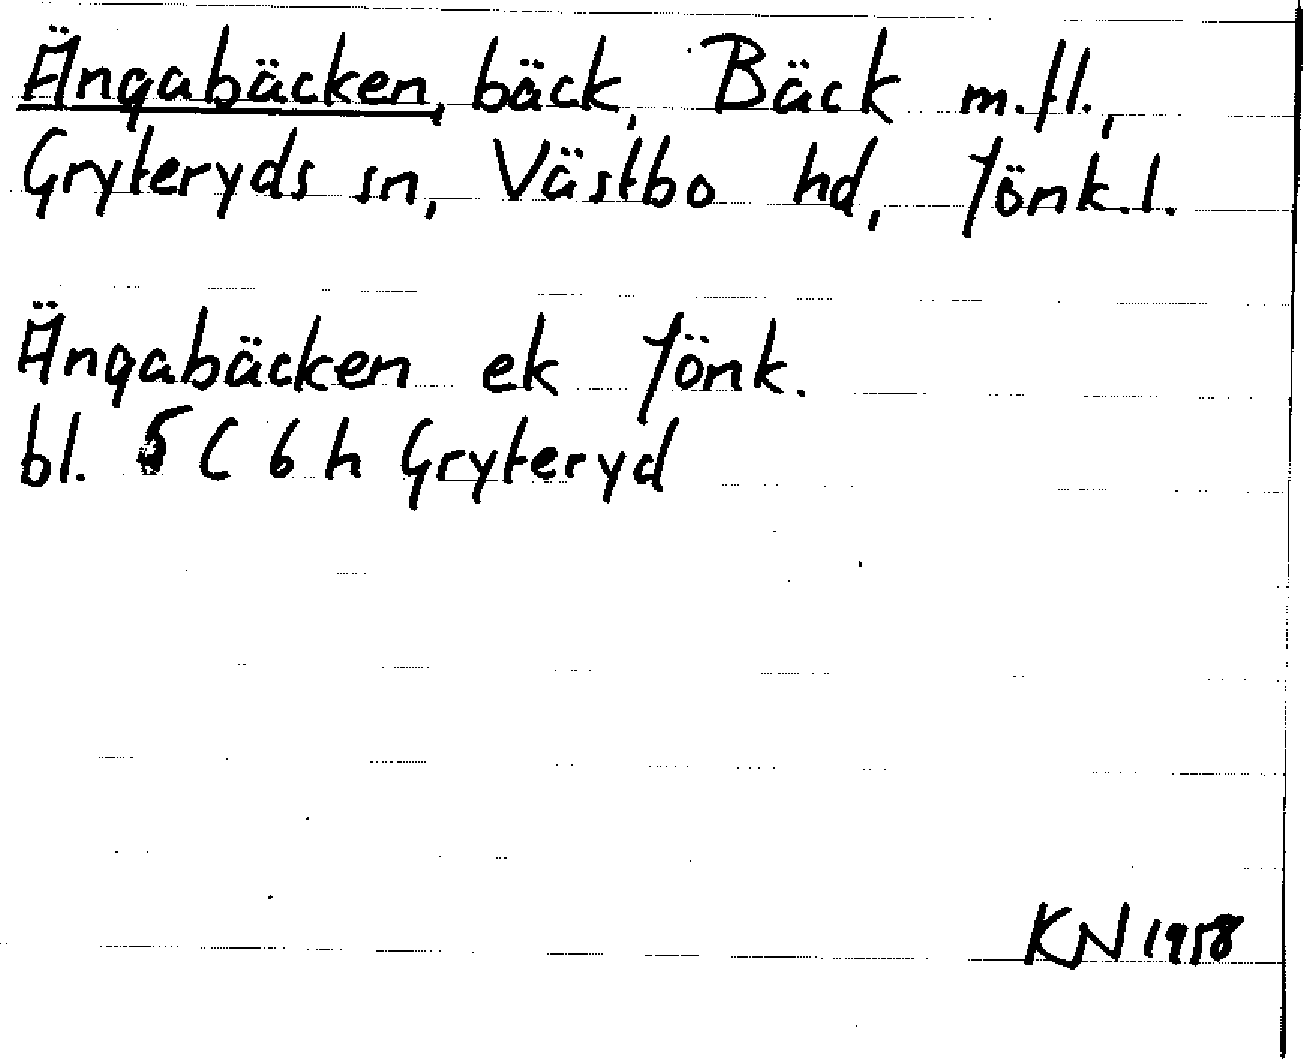 Ängabäcken, bäck, Bäck m.fl.,
Gryteryds sn, Västbo hd, Jönk.l.
Ängabäcken ek Jönk.
bl. 5 C 6 h Gryteryd
KN 1958